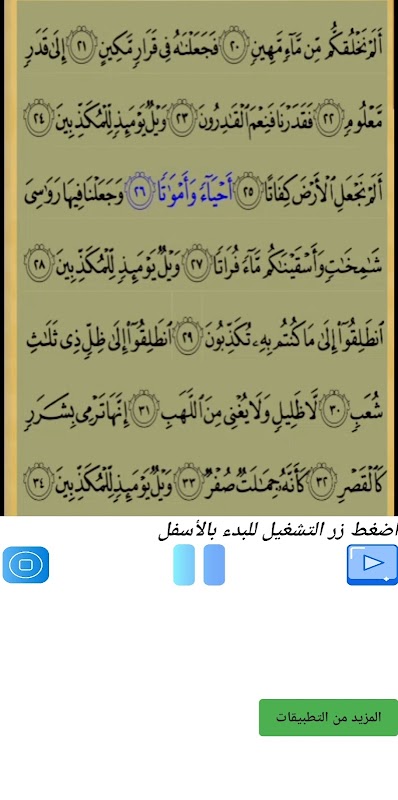 أَلَمْ نَخْلُقكُّم مِّن مَّآءٍ مَّهِينٍ ٢٠ فَجَعَلْنَٰهُ فِى قَرَارٍ مَّكِينٍ ٢١ إِلَىٰ قَدَرٍ
مَّعْلُومٍ ٢٢ فَقَدَرْنَا فَنِعْمَ ٱلْقَٰدِرُونَ ٢٣ وَيْلٌ يَوْمَئِذٍ لِّلْمُكَذِّبِينَ ٢٤
أَلَمْ نَجْعَلِ ٱلْأَرْضَ كِفَاتًا ٢٥ أَحْيَآءً وَأَمْوَٰتًا ٢٦ وَجَعَلْنَا فِيهَا رَوَٰسِىَ
شَٰمِخَٰتٍ وَأَسْقَيْنَٰكُم مَّآءً فُرَاتًا ٢٧ وَيْلٌ يَوْمَئِذٍ لِّلْمُكَذِّبِينَ ٢٨
ٱنطَلِقُوٓا۟ إِلَىٰ مَا كُنتُم بِهِۦ تُكَذِّبُونَ ٢٩ ٱنطَلِقُوٓا۟ إِلَىٰ ظِلٍّ ذِى ثَلَٰثِ
شُعَبٍ ٣٠ لَّا ظَلِيلٍ وَلَا يُغْنِى مِنَ ٱللَّهَبِ ٣١ إِنَّهَا تَرْمِى بِشَرَرٍ
كَٱلْقَصْرِ ٣٢ كَأَنَّهُۥ جِمَٰلَتٌ صُفْرٌ ٣٣ وَيْلٌ يَوْمَئِذٍ لِّلْمُكَذِّبِينَ ٣٤
اضغط زر التشغيل للبدء بالأسفل
المزيد من التطبيقات